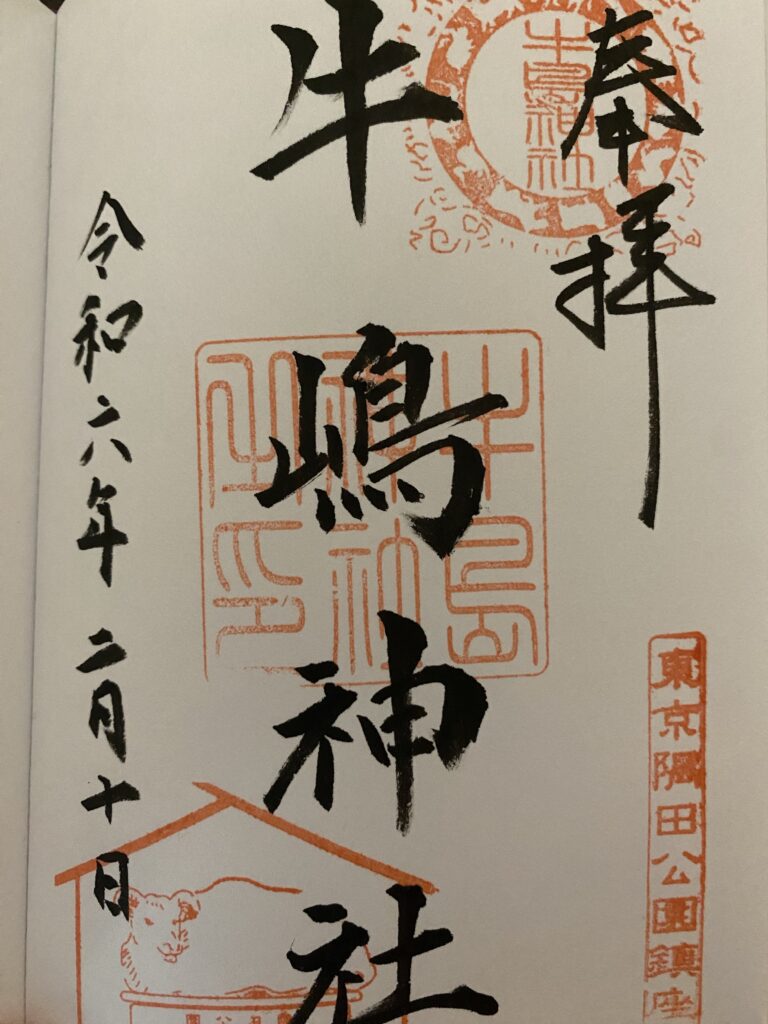 奉拝
牛嶋神社
令和六年二月十日
牛嶋神社
牛島神社之印
東京隅田公園鎮座